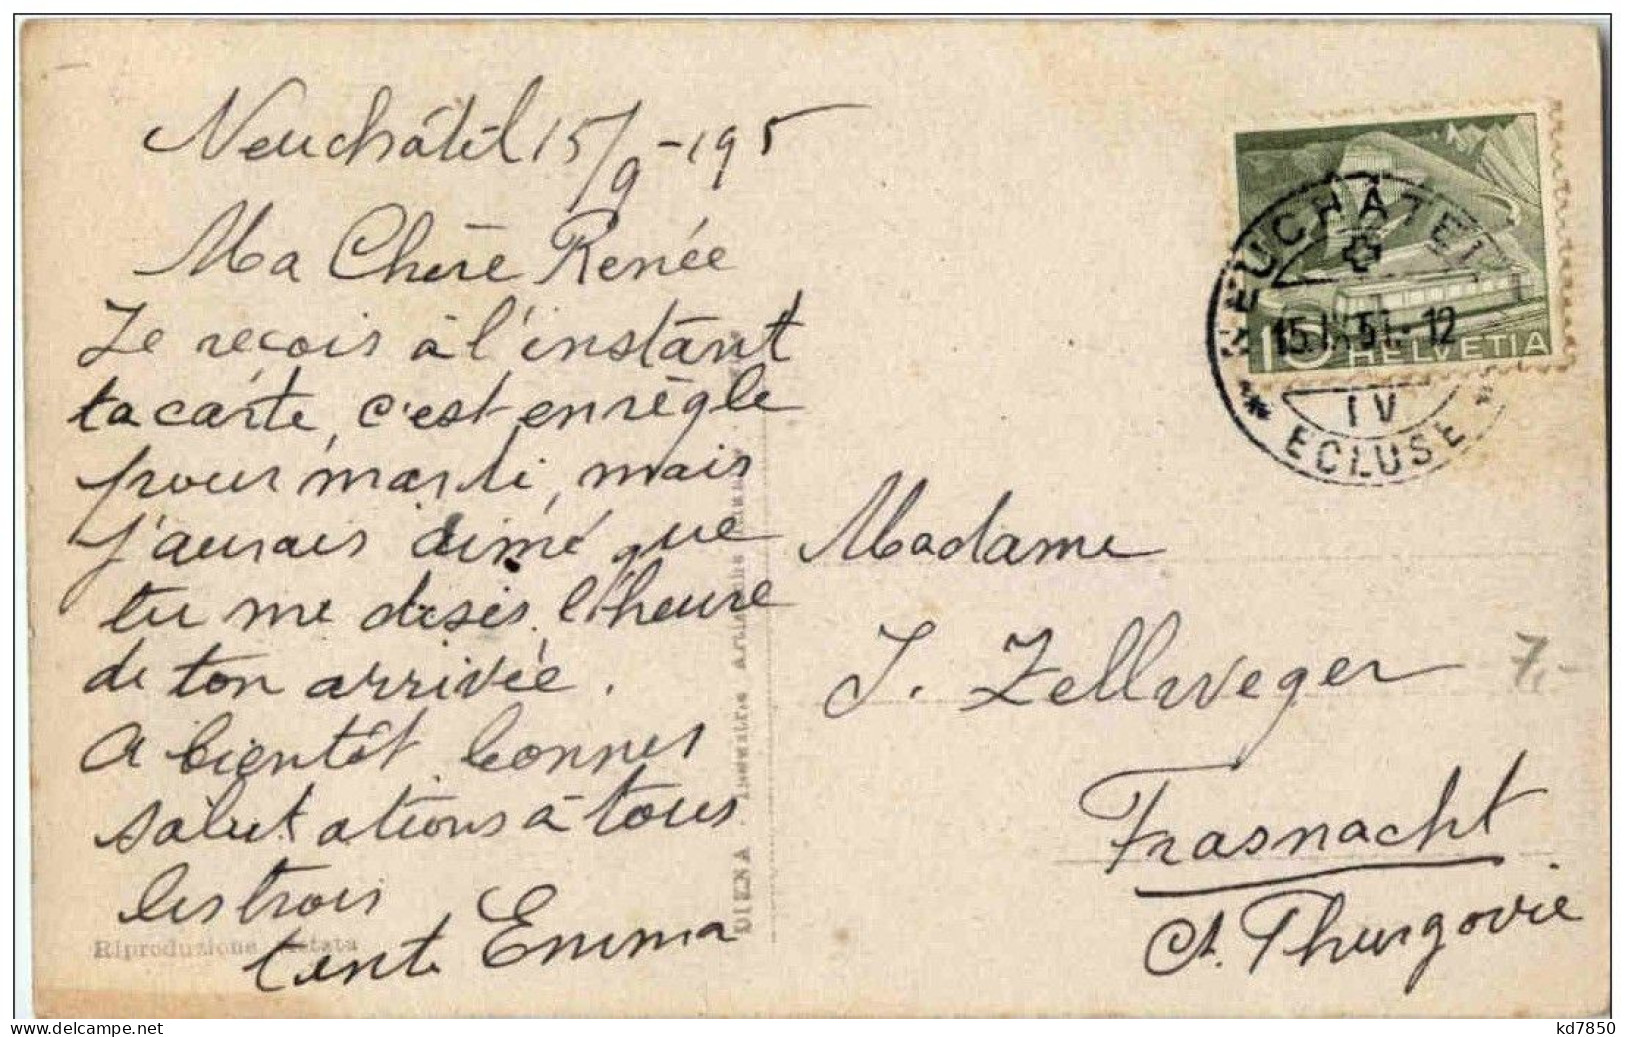 Neuchâtel 15/9 - 195
Ma Chère Renée
Je reçois à l'instant
ta carte, c'est en règle
pour mardi, mais
j'aurais aimé que
tu me dises l'heure
de ton arrivée.
A bientôt bonnes
salutations à tous
les trois
tante Emma
Riproduzione vietata
DIENA
NEUCHÂTEL
15.IX.51.-12
IV
ECLUSE
10 HELVETIA
Madame
J. Zellweger
7.-
Frasnacht
Ct. Thurgovie
kd7850